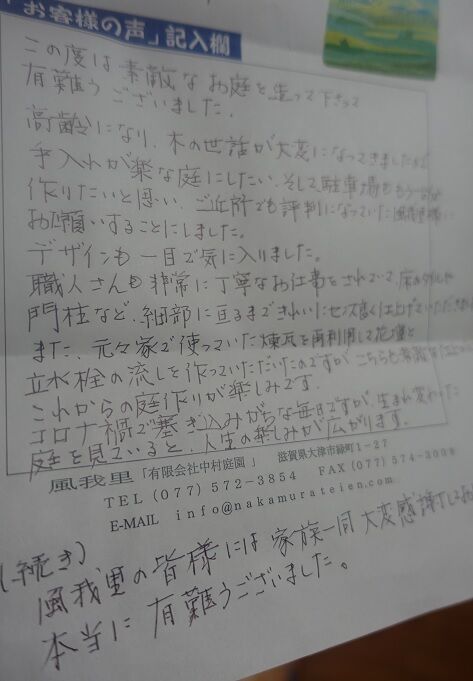 「お客様の声」記入欄
この度は素敵なお庭を造って下さって
有難うございました。
高齢になり、木の世話が大変になってきましたので
手入れが楽な庭にしたい、そして駐車場ももう一台分
作りたいと思い、ご近所でも評判になっていた風我里様に
お願いすることにしました。
デザインも一目で気に入りました。
職人さんも非常に丁寧なお仕事をされていて、床のタイルや
門柱など、細部に亘るまできれいにセンス良く仕上げていただき
また、元々家で使っていた煉瓦を再利用して花壇と
立水栓の流しを作っていただいたのですが、こちらも
これからの庭作りが楽しみです。
コロナ禍で塞ぎ込みがちな毎日ですが、生まれ変わった
庭を見ていると、人生の楽しみが広がります。
風我里「有限会社中村庭園」 滋賀県大津市緑町1-27
TEL (077) 572-3854 FAX (077) 574-3009
E-MAIL info@nakamurateien.com
(続き)
風我里の皆様には家族一同大変感謝しております
本当に有難うございました。